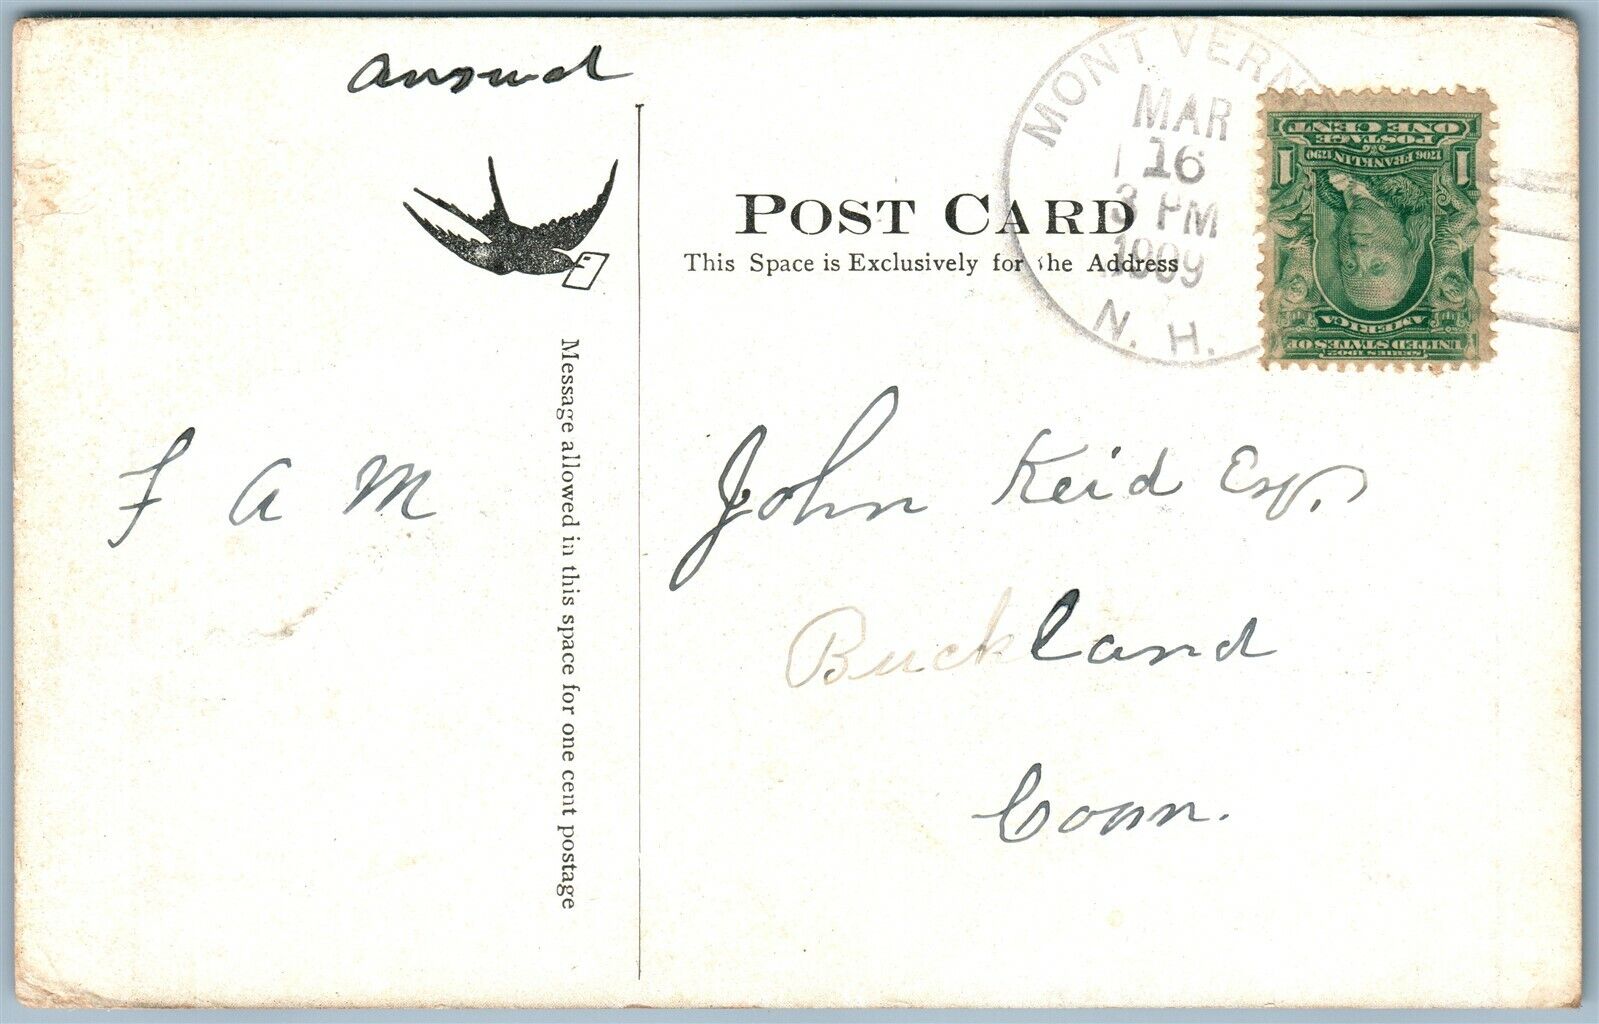 answd
POST CARD
This Space is Exclusively for the Address
Message allowed in this space for one cent postage
F A M
John Reid Esq.
Buckland
Conn.
MONT VERN
MAR
16
3 PM
1909
N. H.
POSTAGE
ONE CENT
1 1706 FRANKLIN 1790 1
AMERICA
UNITED STATES OF
SERIES 1902